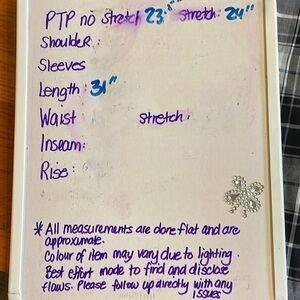 PTP no stretch 23.5" Stretch: 24"
Shoulder:
Sleeves
Length: 31"
Waist Stretch:
Inseam:
Rise:
* All measurements are done flat and are
approximate.
Colour of item may vary due to lighting.
Best effort made to find and disclose
flaws. Please follow up directly with any
issues